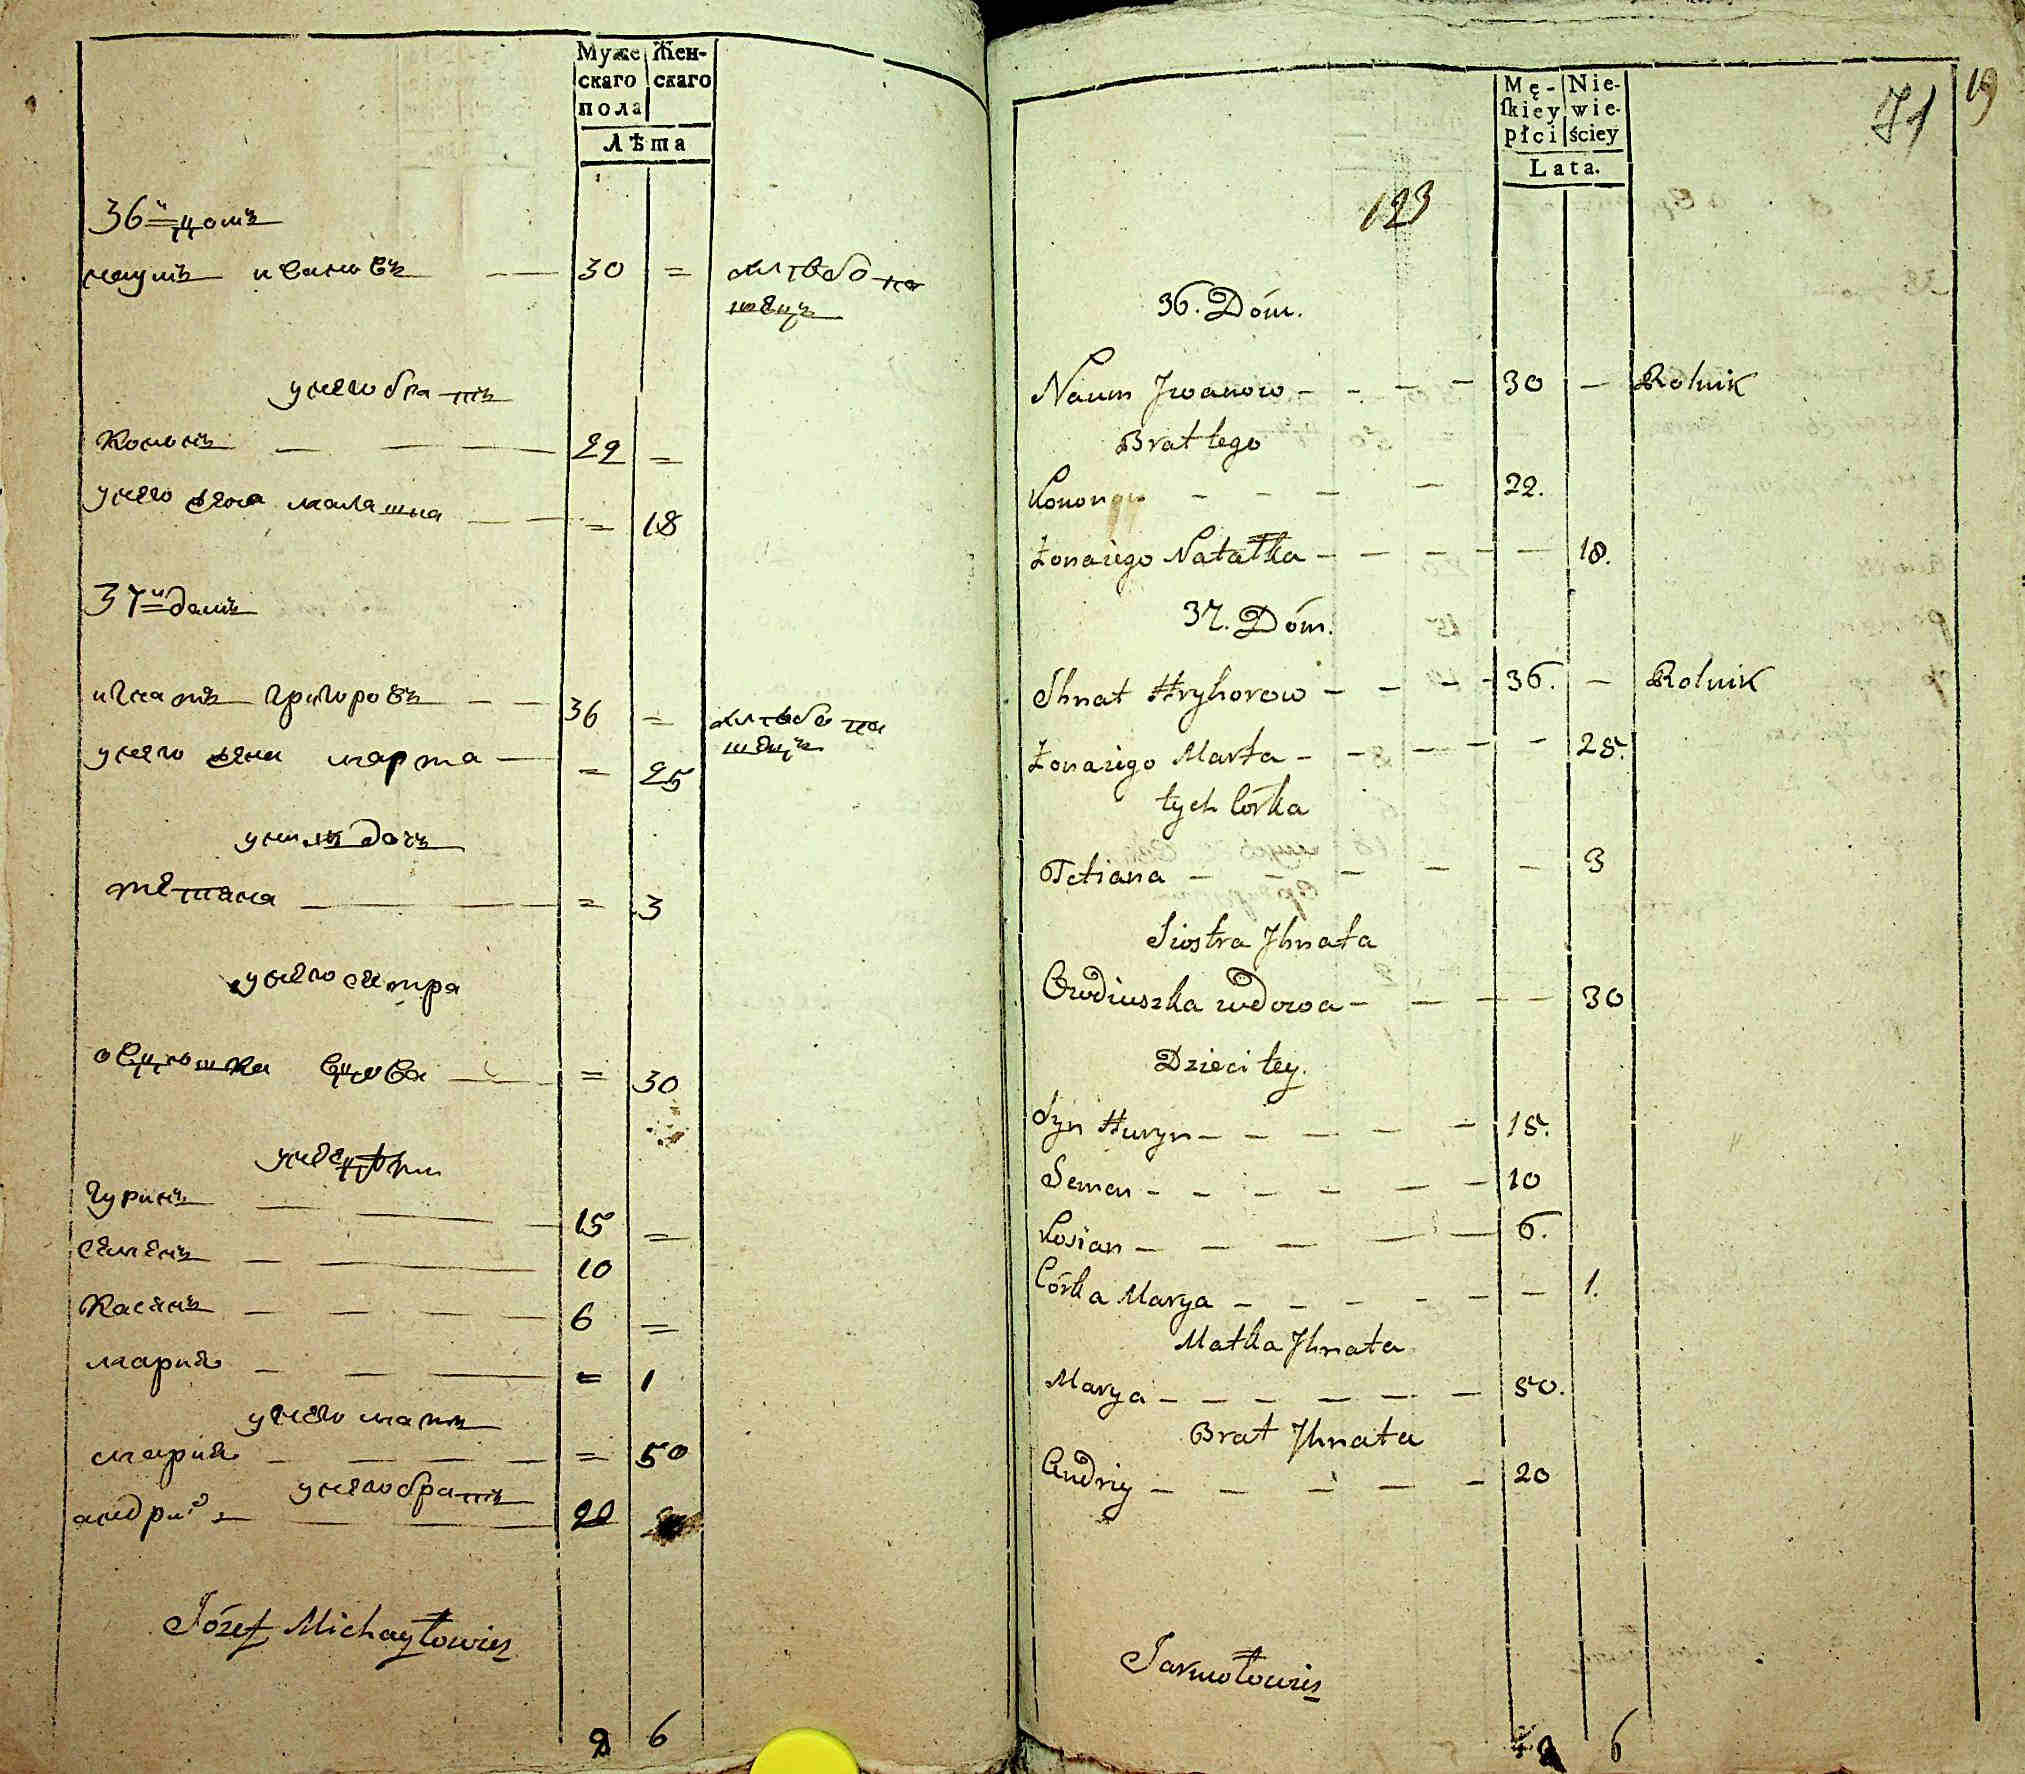 Муже Жен-
скаго скаго
пола
Лѣта
36й домъ
наумъ ивановъ — — 30 = хлѣбопа
шецъ
у него братъ
кононъ — — — 22 =
у него жена малашка — — = 18
37й домъ
игнатъ григоровъ — — 36 = хлѣбопа
шецъ
у него жена марта — = 25
у нихъ дочь
тетяна — — — = 3
у него сестра
овдюшка вдова — — = 30
у нее дѣти
гуринъ — — — 15 =
семенъ — — 10
касянъ — — — — 6 =
мария — — — = 1
у него мать
мария — — — — = 50
у него братъ
андрий — — — 20
Józef Michayłowicz
2 6
71 19
Mę- Nie-
ſkiey wie-
płci ściey
Lata.
123
36. Dóm.
Naum Jwanow — — — — 30 — Rolnik
Brat tego
Konon — — — — 22.
Żona iego Natałka — — — — — 18.
37. Dóm.
Ihnat Hryhorow — — — — 36. — Rolnik
Żona iego Marta — — — — — 25.
tych Córka
Tetiana — — — — — 3
Siostra Jhnata
Owdiuszka wdowa — — — — 30
Dzieci tey.
Syn Huryn — — — — — 15.
Semen — — — — — — 10
Kosian — — — — — 6.
Córka Marya — — — — — — 1.
Matka Jhnata
Marya — — — — — — 50.
Brat Jhnata
Andriy — — — — — 20
Jarmołowicz
6